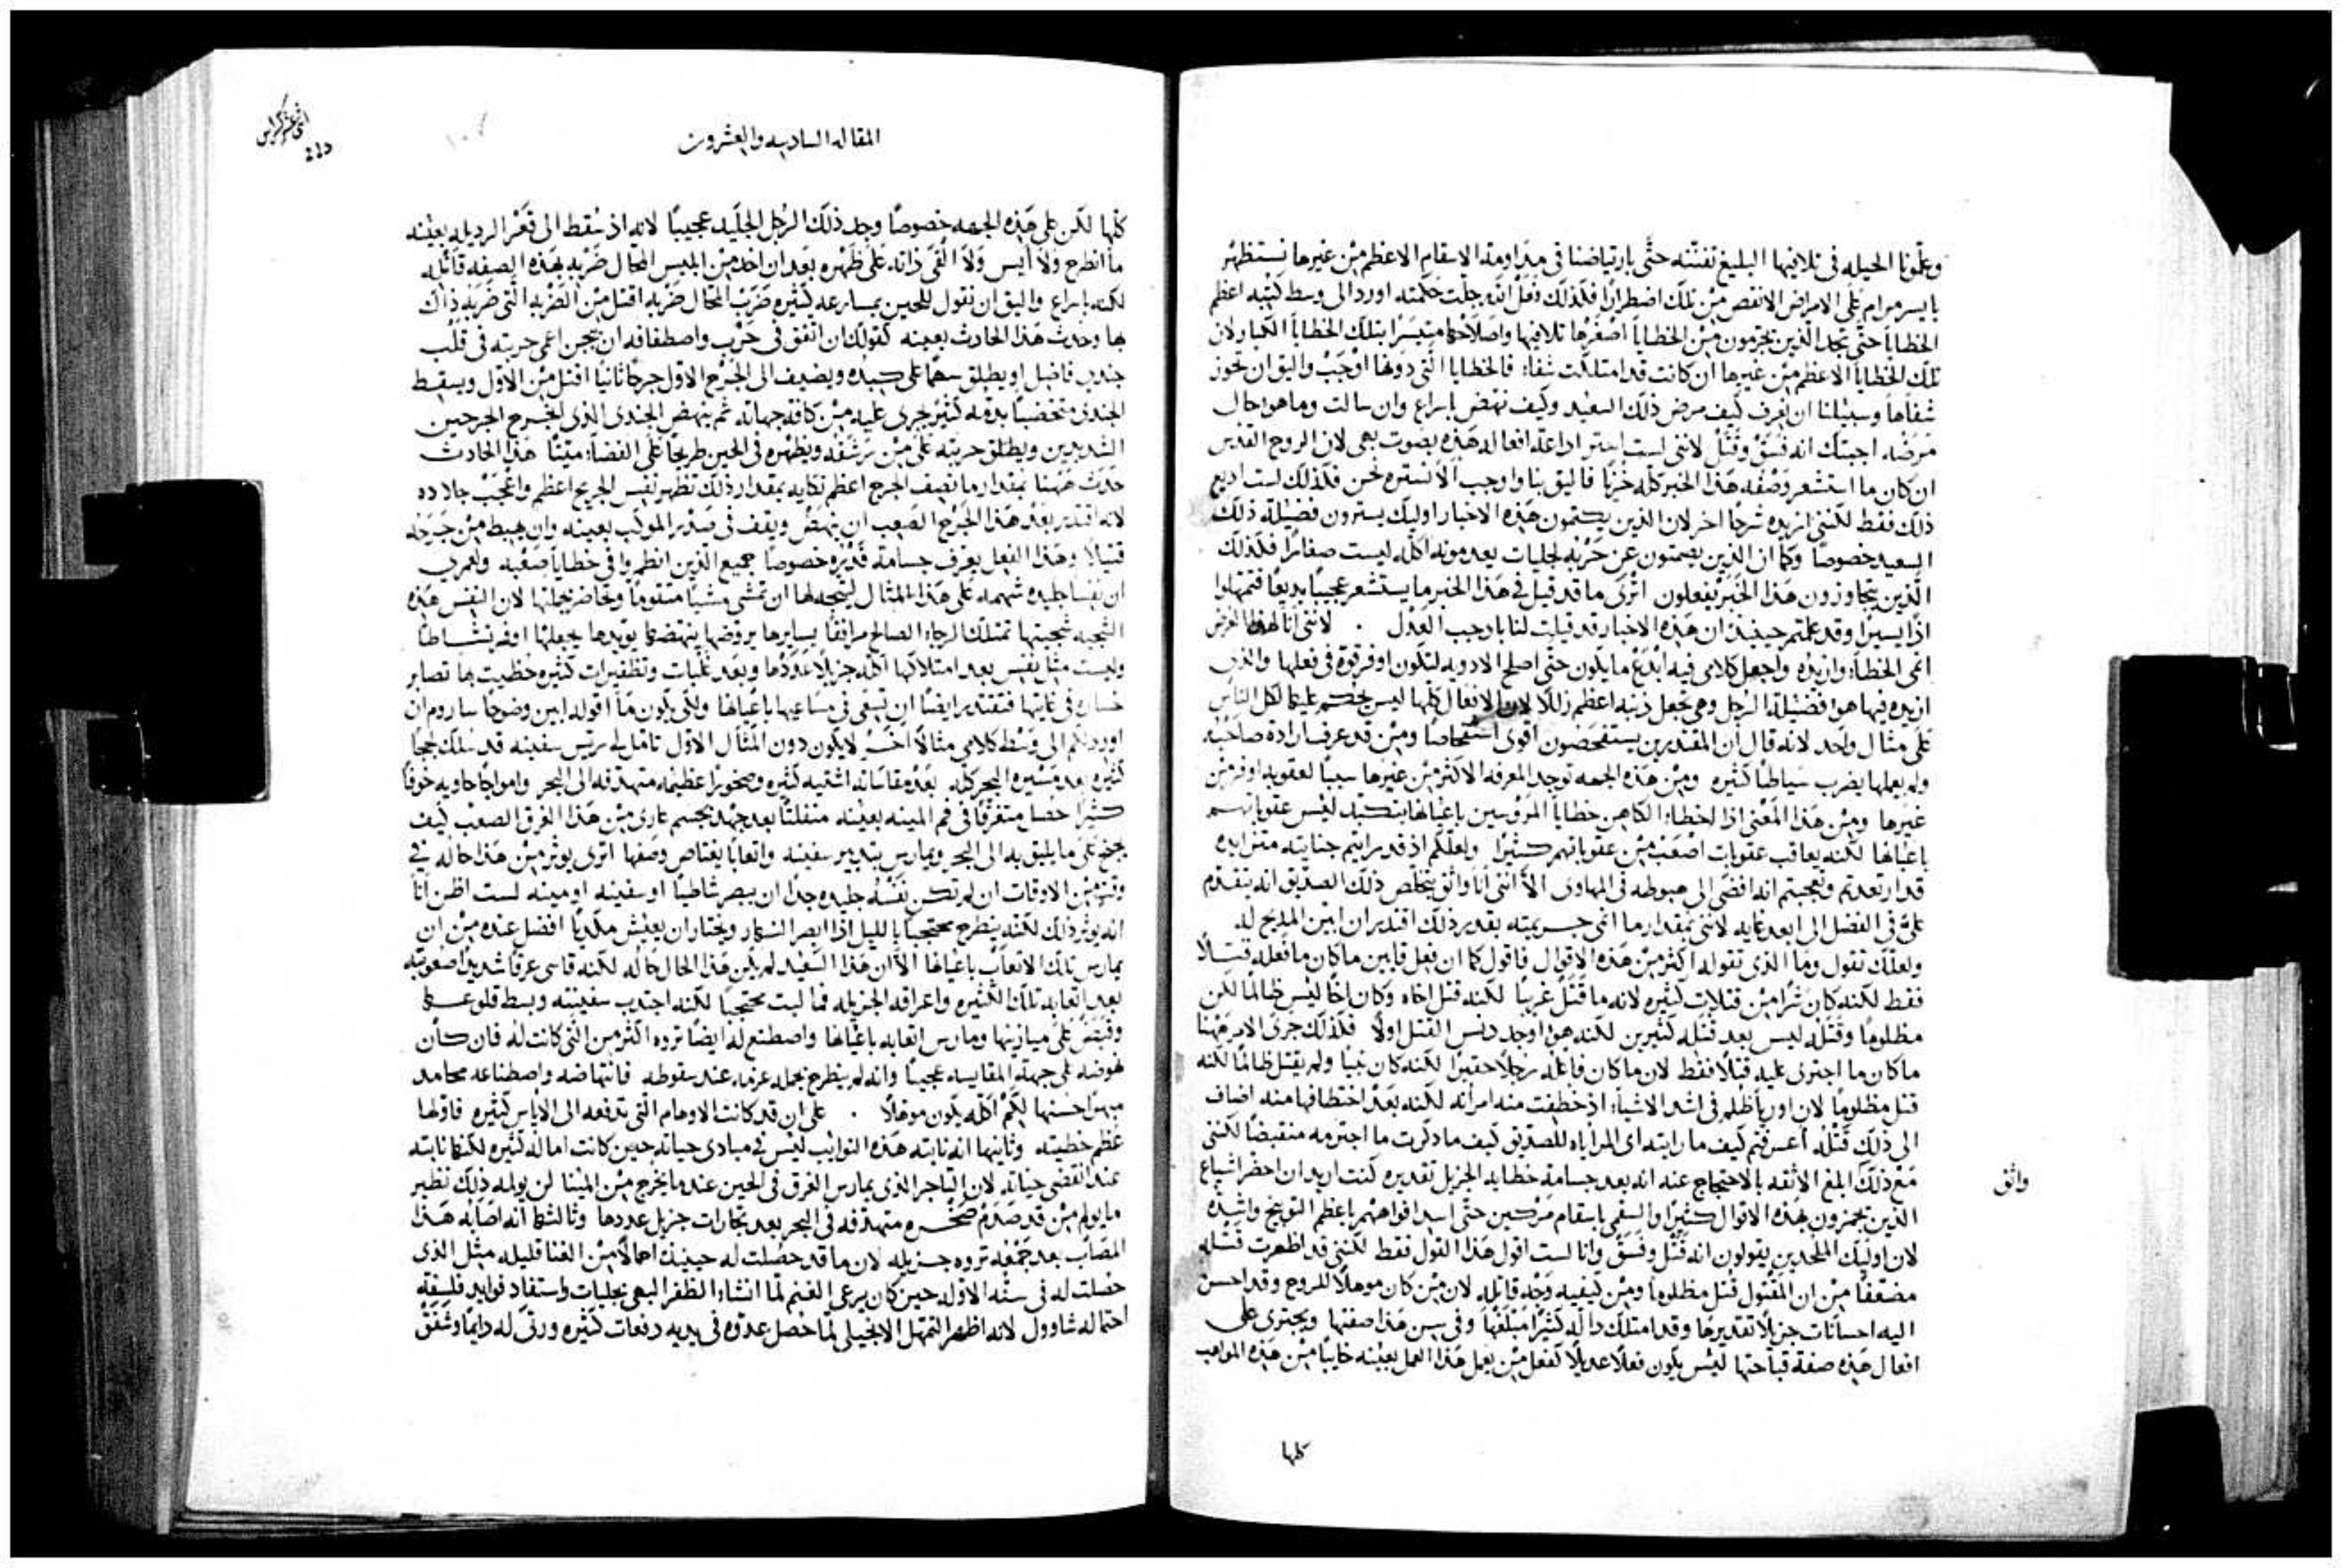 وعلمونا الحيله في تلافيها البليغ تفننه حتى بارتياضنا في مداومة الاسقام الاعظم من غيرها نستظهر
بايسر مرام على الامراض الانقص من تلك اضطرارًا فلذلك فعل الله جلت حكمته اورد الى وسط كتبه اعظم
الخطايا حتى تجد الذين يجترمون من الخطايا اصغرها تلافيها واصلاحها متيسرًا بتلك الخطايا الكبار لان
تلك الخطايا الاعظم من غيرها ان كانت قد امتلكت شفاء فالخطايا التي دونها اوجب واليق ان تحوز
شفاها وسبيلنا ان نعرف كيف مرض ذلك السعيد وكيف نهض باسراع وان سالت وما هو حال
مرضه اجبتك انه فسق وقتل لانني لست استر اذاعة افعاله هذه بصوت بهي لان الروح القدس
ان كان ما استشعر وصفه هذا الخبر كله خزيًا فاليق بنا واوجب الا نستره نحن فلذلك لست اذيع
ذلك فقط لكنني ازيده شرحًا اخر لان الذين يكتمون هذه الاخبار اوليك يسترون فضيلة ذلك
السعيد خصوصًا وكما ان الذين يصمتون عن حربه لجليات يعدمونه اكله ليست صغارًا فكذلك
الذين يتجاوزون هذا الخبر يفعلون اترى ما قد قيل في هذا الخبر ما يستشعر عجيبًا بديعًا فتمهلوا
اذًا يسيرًا وقد علمتم حينيذ ان هذه الاخبار قد قيلت لنا باوجب العدل . لانني انا لهذا الغرض
انمي الخطأ وازيده واجعل كلامي فيه ابدع ما يكون حتى اصلح الادويه لتكون اوفر قوة في فعلها والذي
ازيده فيها هو فضيلة الرجل وهي تجعل ذنبه اعظم زللًا لان الافعال كلها ليس يحكم عليها لكل الناس
على مثال واحد لانه قال ان المقتدرين يستفحصون اقوى استفحاصًا ومن قد عرف ارادة صاحبه
ولم يعملها يضرب سياطًا كثيره ومن هذه الجهه توجد المعرفه الاكثر من غيرها سببًا لعقوبه اوفر من
غيرها ومن هذا المعنى اذا اخطا الكاهن خطايا المروسين باعيانها يتكبد ليس عقوباتهم
باعيانها لكنه يعاقب عقوبات اصعب من عقوباتهم كثيرًا ولعلكم اذ قد رايتم جنايته متزايده
قد ارتعدتم وتعجبتم انه افضى الى هبوطه في المهاوي الا انني انا واثق بتخلص ذلك الصديق انه يتقدم
علي في الفضل الى ابعد غايه لانني بمقدار ما انمي جريمته بقدر ذلك اقتدر ان ابين المديح له
ولعلك تقول وما الذي تقوله اكثر من هذه الاقوال فاقول كما ان فعل قايين ما كان ما فعله قتلًا
فقط لكنه كان شرًا من قتلات كثيره لانه ما قتل غريبًا لكنه قتل اخاه وكان اخًا ليس ظالمًا لكن
مظلومًا وقتله ليس بعد قتله كثيرين لكنه هو اوجد دنس القتل اولًا فكذلك جرى الامر ههنا
ما كان ما اجترى عليه قتلًا فقط لان ما كان فاعله رجلًا حقيرًا لكنه كان نبيًا ولم يقتل ظالمًا لكنه
قتل مظلومًا لان اوريا ظلم في اشد الاشياء اذ خطفت منه امراته لكنه بعد اختطافها منه اضاف
الى ذلك قتله اعرفتم كيف ما رايته اي المراياه للصديق كيف ما ذكرت ما اجترمه منقبضًا لكنني
مع ذلك ابلغ الاثقه بالاحتجاج عنه انه بعد جسامة خطايه الجزيل تقديره كنت اريد ان احضر اشياع
الذين يجمزون بهذه الاقوال كثيرًا والسقمى باسقام مركيين حتى اسد افواههم باعظم التوبيخ واشده
لان اوليك الملحدين يقولون انه قتل وفسق وانا لست اقول هذا القول فقط لكنني قد اظهرت قتله
مضعفًا من ان المقتول قتل مظلومًا ومن كيفية وجه قاتله لان من كان موهلًا للروح وقد احسن
اليه احسانات جزيلًا تقديرها وقد امتلك داله كثيرًا مبلغها وفي سن هذا صفتها ويجترى على
افعال هذه صفة قباحتها ليس يكون فعلًا عديلًا لفعل من يعمل هذا العمل بعينه خايبًا من هذه المواهب
واثق
كلها
المقاله السادسه والعشرون
اثني عشر كراس
كلها لكن على هذه الجهه خصوصًا وجد ذلك الرجل الجليد عجيبًا لانه اذ سقط الى قعر الرذيله بعينه
ما انطرح ولا ايس ولا القى ذاته على ظهره بعد ان اخذ من ابليس المحال ضربه بهذه الصفه قاتله
لكنه باسراع واليق ان نقول للحين بمسارعه كثيره ضرب المحال ضربه اقتل من الضربه التي ضربه ذاك
بها وحدث هذا الحادث بعينه كقولك ان اتفق في حرب واصطفافه ان يحجن اعجمي حربته في قلب
جندي فاضل او يطلق سهمًا على كبده ويضيف الى الجرح الاول جرحًا ثانيًا اقتل من الاول ويسقط
الجندي متخضبًا بدمه كثير يجري عليه من كافة جهاته ثم ينهض الجندي الذي انجرح الجرحين
الشديدين ويطلق حربته على من رشقه ويظهره في الحين طريحًا على الفضاء ميتًا هذا الحادث
حدث ههنا بمقدار ما تصف الجرح اعظم نكايه بمقدار ذلك تظهر نفس الجريح اعظم واعجب جلاده
لانه اقتدر بعد هذا الجرح الصعب ان ينهض ويقف في صدر الموكب بعينه وان يهبط من جرحه
قتيلًا وهذا الفعل يعرف جسامة قدره خصوصًا جميع الذين انطرحوا في خطايا صعبه ولعمري
ان نفسًا جليده شهمه على هذا المثال ليتجه لها ان تمشي مشيًا متقومًا وتحاضر بجملتها لان النفس هذه
السجيه سجيتها تمتلك الرجاء الصالح مرافقًا يسايرها يروضها ينهضها يويدها يجعلها اوفر نشاطًا
وليست مثل نفس بعد امتلاكها اكله جزيلًا عددها وبعد غلبات وتظفيرات كثيره حظيت بها تصابر
خساره في غايتها فتقتدر ايضًا ان تسعى في مساعيها باعيانها ولكي يكون ما اقوله ابين وضوحًا ساروم ان
اورد لكم الى وسط كلامي مثالًا اخر لا يكون دون المثال الاول تامل لي ريس سفينه قد سلك لججًا
كثيره بعد مسيره البحر كله بعد مقاساته اشتيه كثيره وصخورًا عظيمه متهدفه الى البحر وامواجًا حاويه خوفًا
كثيرًا حصل متغرقًا في فم المينه بعينه منفلتًا بعد جهد بجسم عاري من هذا الغرق الصعب كيف
يجنح على ما يليق به الى البحر ويمارس بتدبير سفينه واتعابًا يعتاص وصفها اترى يوثر من هذا حاله في
وقت من الاوقات ان لم تكن نفسه جليده جدًا ان يبصر شاطيًا او سفينه او مينه لست اظن انا
انه يوثر ذلك لكنه ينطرح محتجبًا بالليل اذا ابصر النهار ويختار ان يعيش مكديًا افضل عنده من ان
يمارس تلك الاتعاب باعيانها الا ان هذا السعيد لم يكن هذا الحال حاله لكنه قاسى غرقًا شديدًا صعوبته
بعد اتعابه تلك الكثيره واعراقه الجزيله فما لبث محتجبًا لكنه اجتذب سفينته وبسط قلوعها
وقبض على ميازينها ومارس اتعابه باعيانها واصطنع له ايضًا ثروه اكثر من التي كانت له فان كان
نهوضه على جهة المقايسه عجيبًا وانه لم ينطرح بجمله عزمه عند سقوطه فانتهاضه واصطناعه محامد
حسنها لكم اكله يكون موهلًا . على ان قد كانت الاوهام التي تدفعه الى الاياس كثيره فاولها
عظم خطيته وثانيها انه نابته هذه النوايب ليس في مبادي حياته حين كانت اماله كثيره لكنها نابته
عند انقضى حياته لان التاجر الذي يمارس الغرق في الحين عند ما يخرج من المينا لن يولمه ذلك نظير
ما يولم من قد صدم صخره متهدفه في البحر بعد تجارات جزيل عددها وثالثها انه اصابه هذا
المصاب بعد جمعه ثروه جزيله لان ما قد حصلت له حينيذ احمالًا من الغنا قليله مثل الذي
حصلت له في سنه الاوله حين كان يرعى الغنم لما انشاء الظفر البهي بجليات واستفاد فوايد فلسفة
احتماله شاوول لانه اظهر التمهل الانجيلي لما حصل عدوه في يديه دفعات كثيره ورثى له دايمًا وشفق